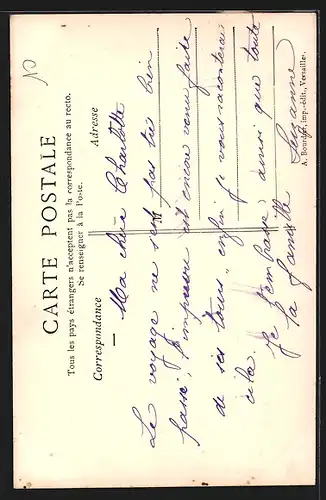 CARTE POSTALE
Tous les pays étrangers n'acceptent pas la correspondance au recto.
Se renseigner à la Poste.
Correspondance
Adresse
M
Ma chère Charlotte
Le voyage ne sest pas très bien
passé, est encore venu faire
de ses tours, enfin je vous raconterai
cela.
Je t'embrasse ainsi que toute
la famille
Suzanne
A. Bourdier, imp.-édit., Versailles.